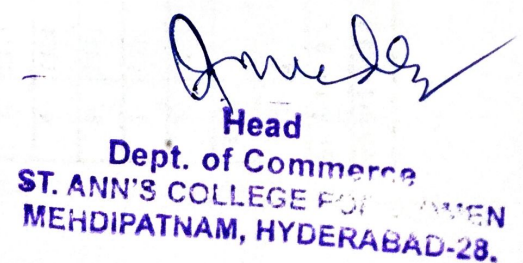 Head
Dept. of Commerce
ST. ANN'S COLLEGE FOR WOMEN
MEHDIPATNAM, HYDERABAD-28.